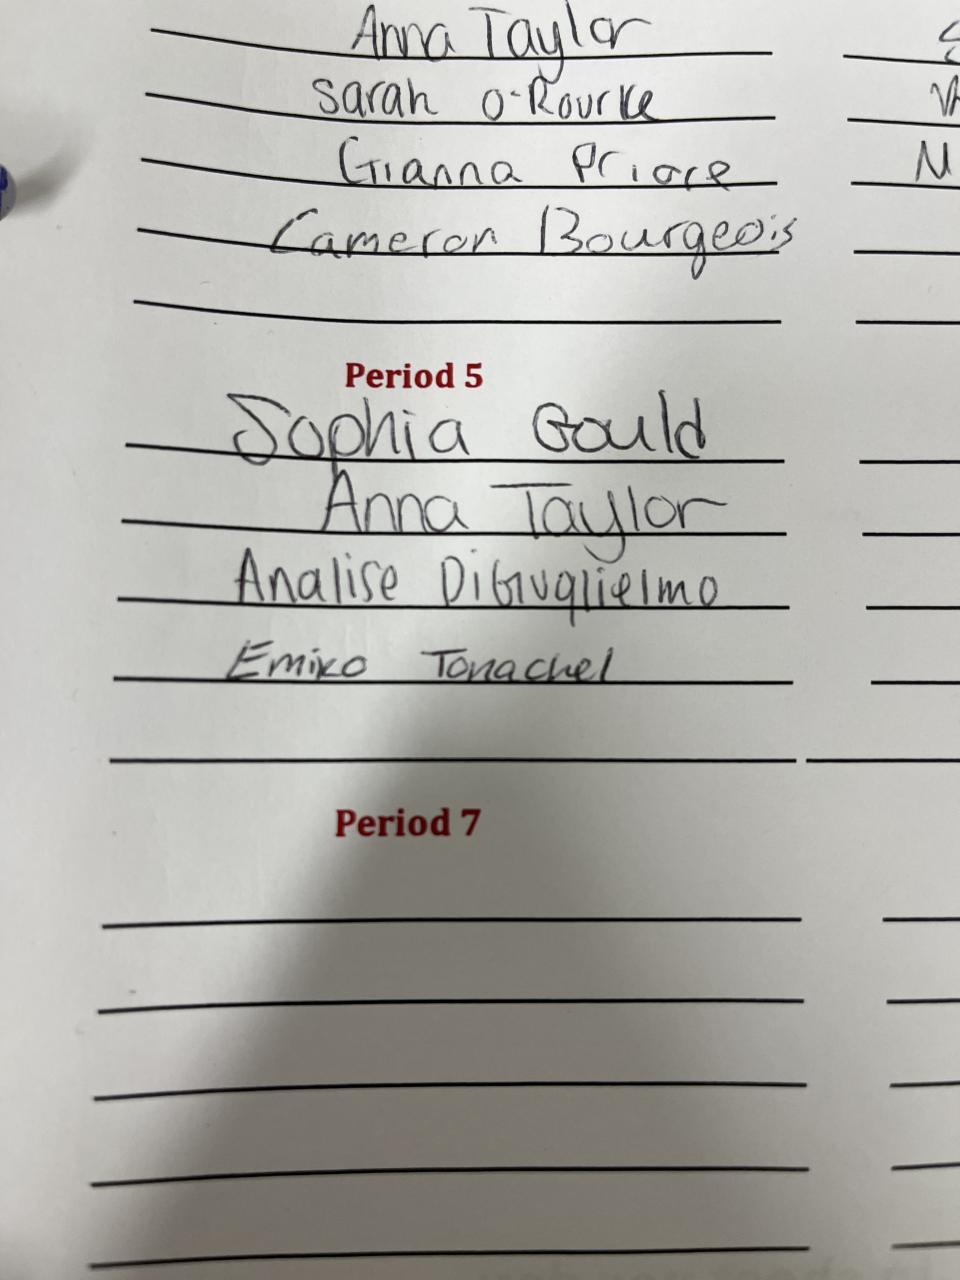 Anna Taylor
Sarah O'Rourke
Gianna Priore
N
Cameron Bourgeois
Period 5
Sophia Gould
Anna Taylor
Analise DiGuglielmo
Emiko Tonachel
Period 7